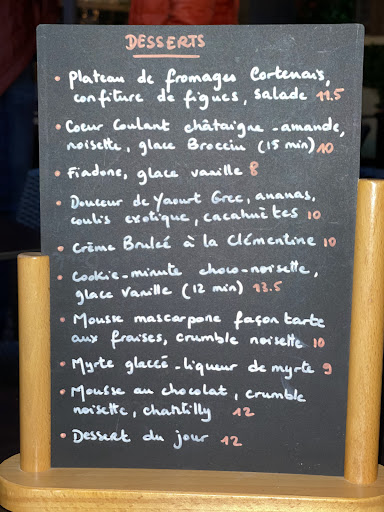 DESSERTS
• Plateau de fromages Cortenais,
confiture de figues, salade 11.5
• Coeur Coulant châtaigne-amande,
noisette, glace Brocciu (15 min) 10
• Fiadone, glace vanille 8
• Douceur de Yaourt Grec, ananas,
coulis exotique, cacahuètes 10
• Crème Brulée à la Clémentine 10
• Cookie-minute choco-noisette,
glace Vanille (12 min) 13.5
• Mousse mascarpone façon tarte
aux fraises, crumble noisette 10
• Myrte glacée - liqueur de myrte 9
• Mousse au chocolat, crumble
noisette, chantilly 12
• Dessert du jour 12